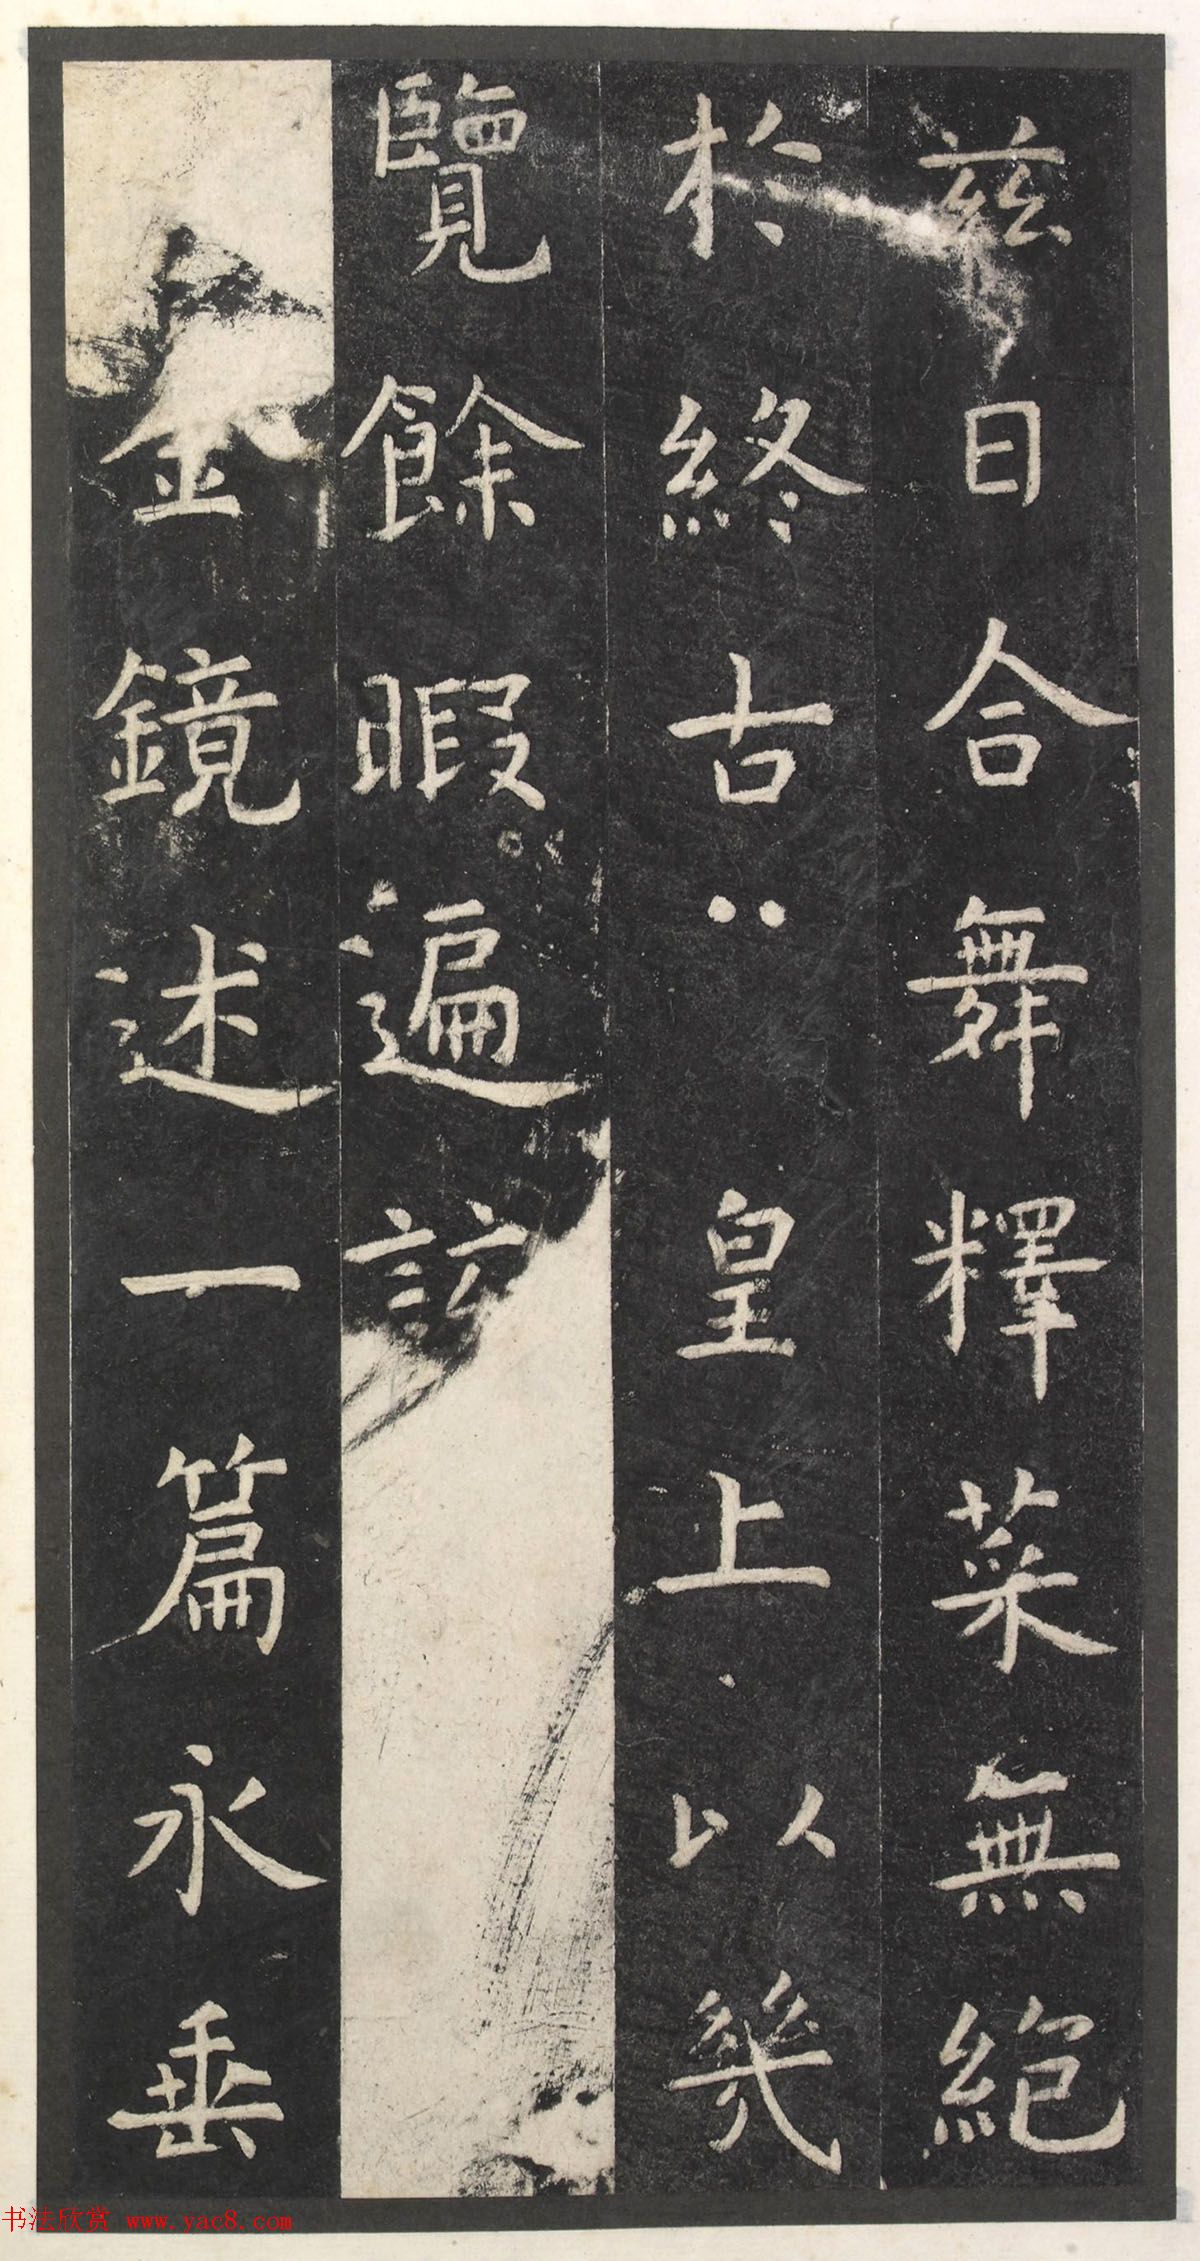 茲日合舞釋菜無絕
於終古皇上以幾
覽餘暇遍該
金鏡述一篇永垂
书法欣赏 www.yac8.com